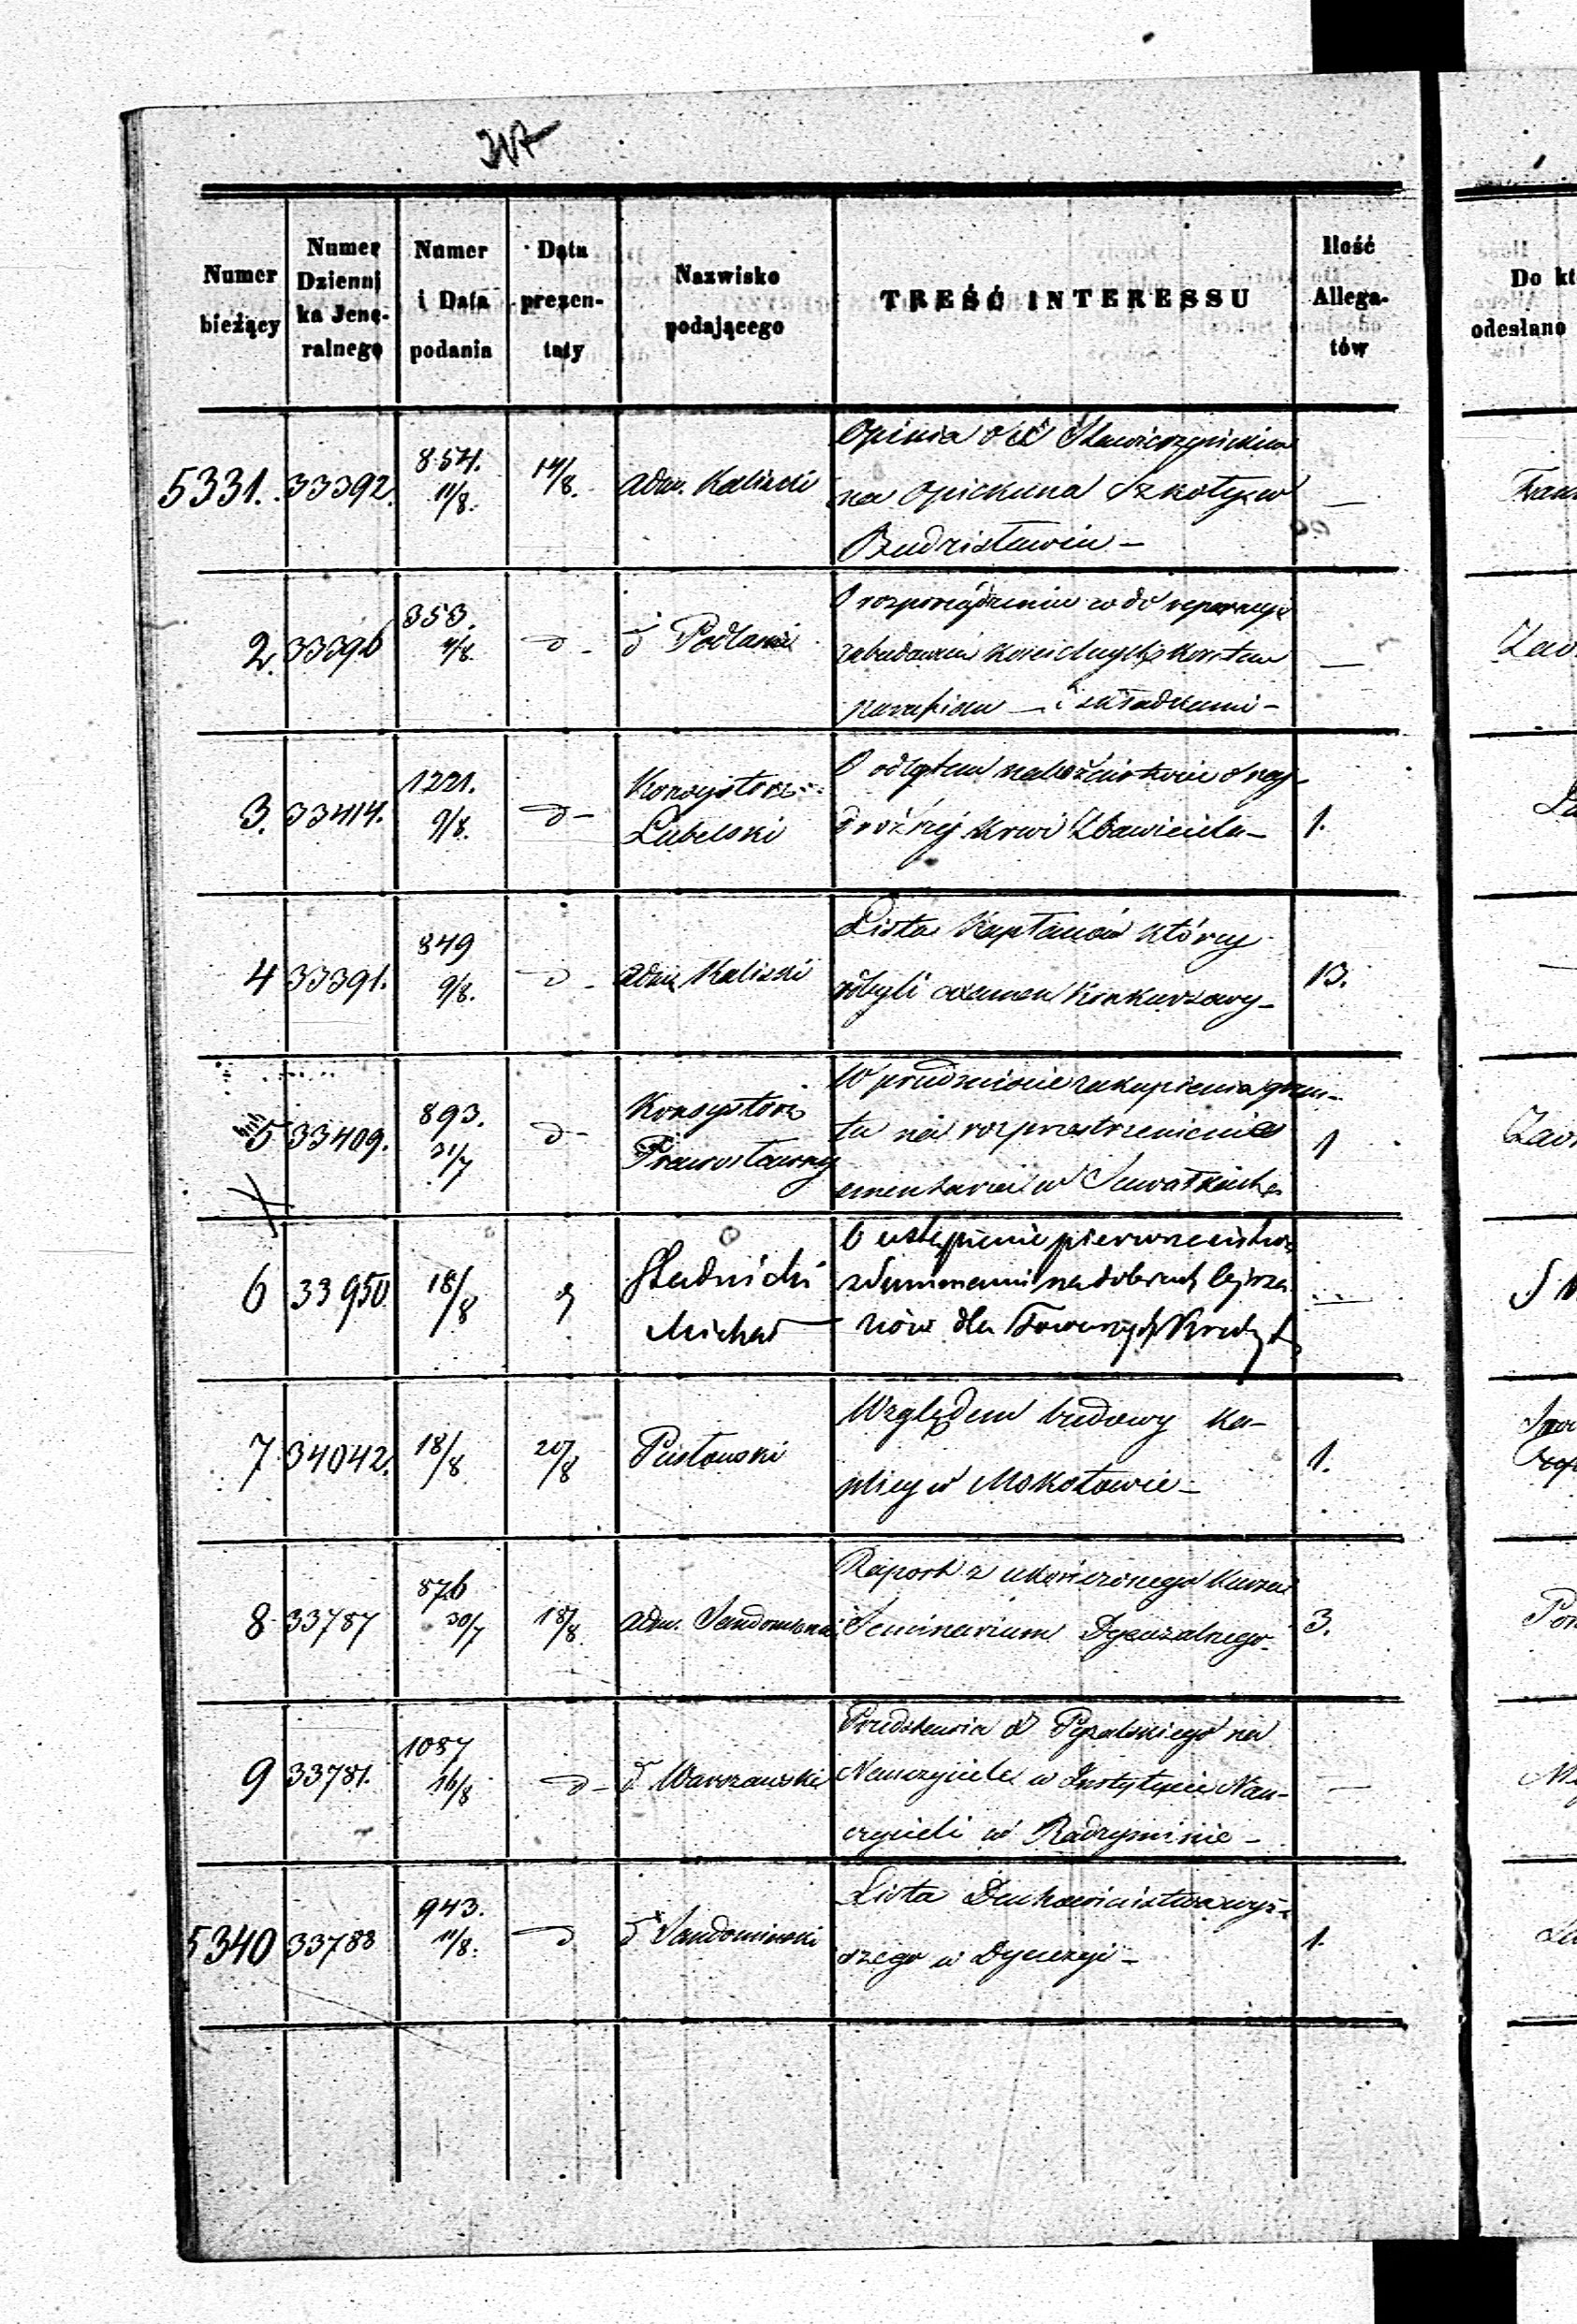 Numer bieżący
Numer Dzienni ka Jene- ralnego
Numer i Data podania
Data prezen- taty
Nazwisko podającego
TREŚĆ INTERESSU
Ilość Allega- tów
Do kt
odesłano
5331. 33392. 854. 11/8. 14/8. Adm. Kaliski
Opinia o
na Opiekuna Szkoły w
Budzisławiu –
2. 33396 353. d – d Podlaski
O rozporządzeniu co do reperacyi
zabudowań
parafian — i składkami –
3. 33414. 1221. 9/8. d – Konsystorz Lubelski
O odbytem nabożeństwie o naj-
droższej Krwi Zbawiciela – 1.
4 33391. 849 9/8. d – Adm. Kaliski
Lista Kapłanów którzy
odbyli examen Konkursowy – 13.
5 33409. 893. 31/7 d – Konsystorz Prawosławny
W przedmiocie zakupienia grun-
tu na rozprzestrzenienie
cmentarza w Suwałkach 1
6 33950 18/8 Stadnicki Michał
O ustąpienie pierwszeństwa
z summami na dobrach
dla Towarzys. Kredyt
7 34042. 18/8 20/8 Pusłowski
Względem budowy Ka-
plicy w Mokotowie – 1.
8 33787 876 30/7 18/8 Adm. Sandomirski
Raport z ukończonego Kursu
Seminarium Dyecezalnego – 3.
9 33781. 1087 16/8 d – d Warszawski
Przedstawia
Nauczyciela w Instytucie Nau-
czycieli w Radzyminie – —
5340 33788 943. 11/8. d d Sandomirski
Lista Duchowieństwa wyż-
szego w Dyecezyi – 1.